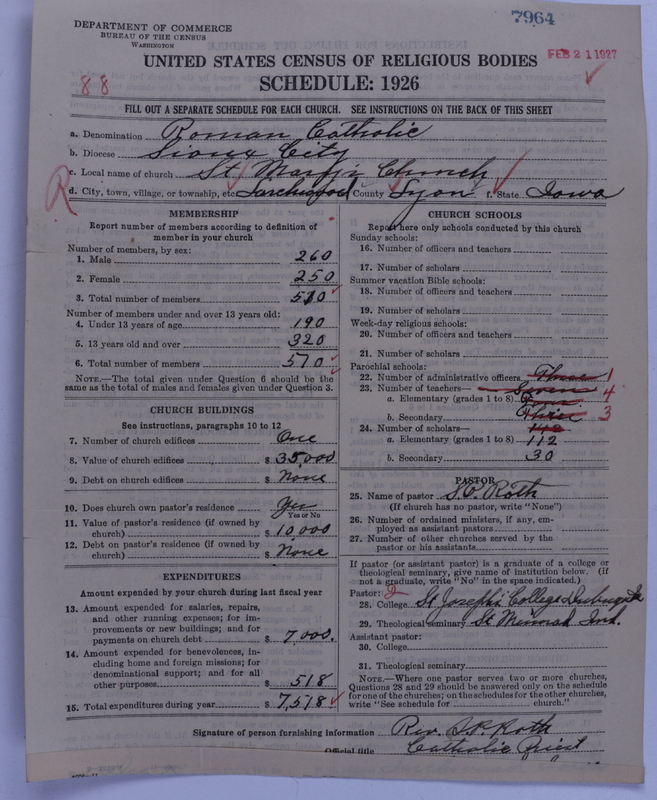 7964
DEPARTMENT OF COMMERCE
BUREAU OF THE CENSUS
WASHINGTON
FEB 21 1927
UNITED STATES CENSUS OF RELIGIOUS BODIES
88
SCHEDULE: 1926
FILL OUT A SEPARATE SCHEDULE FOR EACH CHURCH. SEE INSTRUCTIONS ON THE BACK OF THIS SHEET
a. Denomination Roman Catholic
b. Diocese Sioux City
c. Local name of church St. Mary's Church
R
d. City, town, village, or township, etc. Larchwood County Lyon f. State Iowa
MEMBERSHIP
Report number of members according to definition of
member in your church
Number of members, by sex:
1. Male 260
2. Female 250
3. Total number of members 510
Number of members under and over 13 years old:
4. Under 13 years of age 190
5. 13 years old and over 320
6. Total number of members 510
NOTE.—The total given under Question 6 should be the
same as the total of males and females given under Question 3.
CHURCH BUILDINGS
See instructions, paragraphs 10 to 12
7. Number of church edifices One
8. Value of church edifices $ 35,000
9. Debt on church edifices $ None
10. Does church own pastor's residence Yes
Yes or No
11. Value of pastor's residence (if owned by
church) $ 10,000
12. Debt on pastor's residence (if owned by
church) $ None
EXPENDITURES
Amount expended by your church during last fiscal year
13. Amount expended for salaries, repairs,
and other running expenses; for im-
provements or new buildings; and for
payments on church debt $ 7,000.
14. Amount expended for benevolences, in-
cluding home and foreign missions; for
denominational support; and for all
other purposes $ 518
15. Total expenditures during year $ 7,518
CHURCH SCHOOLS
Report here only schools conducted by this church
Sunday schools:
16. Number of officers and teachers
17. Number of scholars
Summer vacation Bible schools:
18. Number of officers and teachers
19. Number of scholars
Week-day religious schools:
20. Number of officers and teachers
21. Number of scholars
Parochial schools:
22. Number of administrative officers Three 1
23. Number of teachers— Seven 4
a. Elementary (grades 1 to 8) Four
b. Secondary Three 3
24. Number of scholars— 142
a. Elementary (grades 1 to 8) 112
b. Secondary 30
PASTOR
25. Name of pastor S.P. Roth
(If church has no pastor, write "None")
26. Number of ordained ministers, if any, em-
ployed as assistant pastors
27. Number of other churches served by the
pastor or his assistants
If pastor (or assistant pastor) is a graduate of a college or
theological seminary, give name of institution below. (If
not a graduate, write "No" in the space indicated.)
Pastor: 2
28. College St Joseph's College Dubuque Ia
29. Theological seminary St Meinrad Ind.
Assistant pastor:
30. College
31. Theological seminary
NOTE.—Where one pastor serves two or more churches,
Questions 28 and 29 should be answered only on the schedule
for one of the churches; on the schedules for the other churches,
write "See schedule for church."
Signature of person furnishing information Rev. S.P. Roth
Official title Catholic Priest